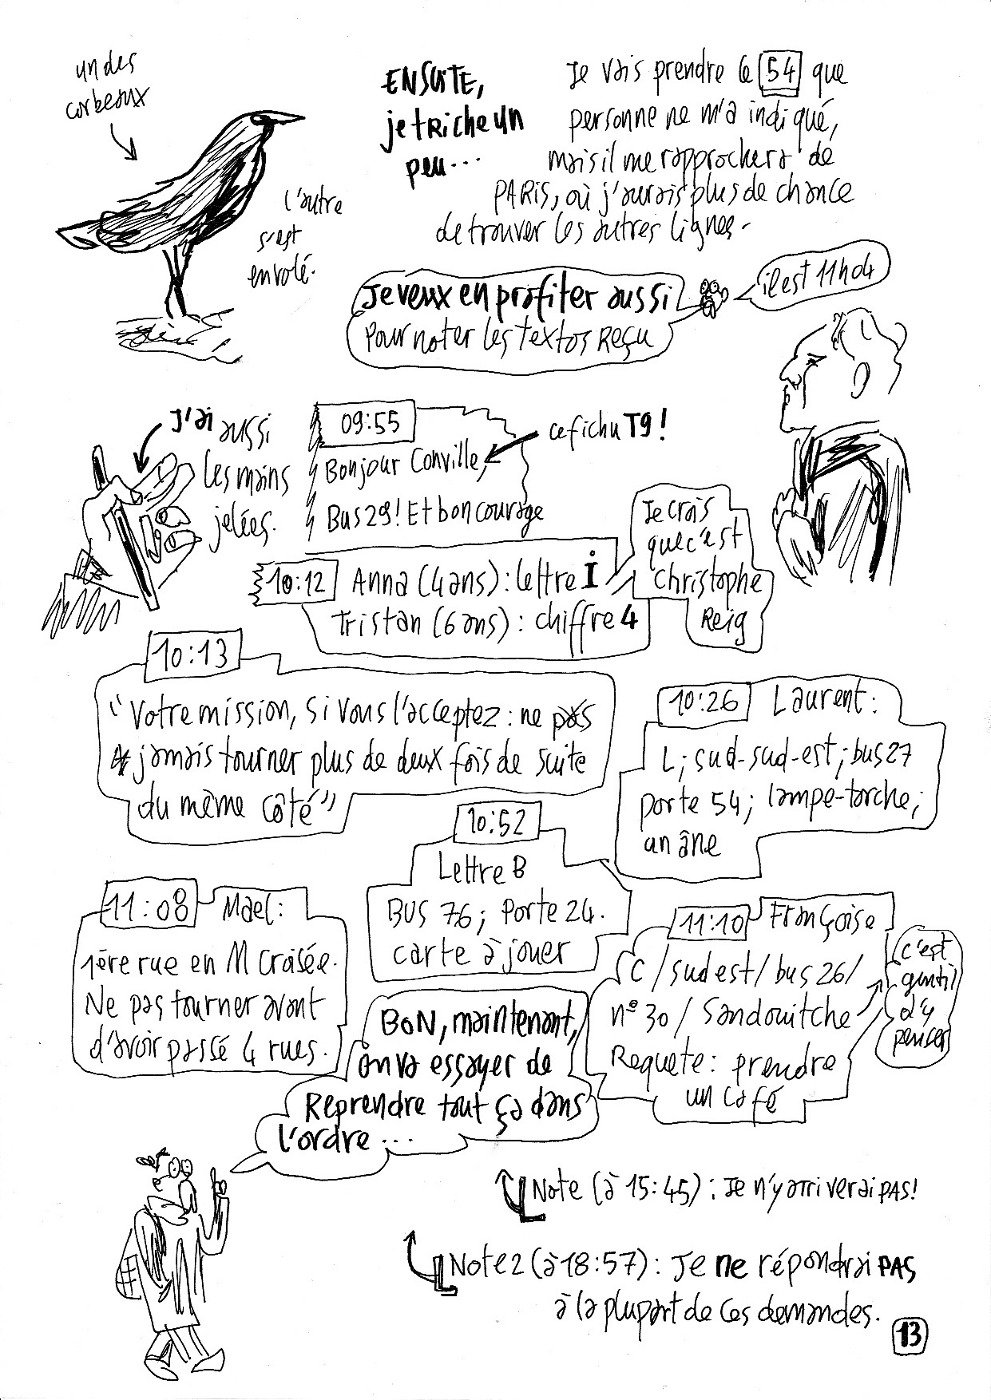 un des
corbeaux
l'autre
s'est
envolé.
ENSUITE,
je triche un
peu...
Je vais prendre le 54 que
personne ne m'a indiqué,
mais il me rapprochera de
PARIS, où j'aurais plus de chance
de trouver les autres lignes.
Je veux en profiter aussi
pour noter les textos reçu
il est 11h04
J'ai aussi
les mains
jelées.
09:55
Bonjour Conville,
Bus 29! Et bon courage
ce fichu T9!
10:12 Anna (4 ans): lettre i
Tristan (6 ans): chiffre 4
Je crois
que c'est
Christophe
Reig
10:13
"Votre mission, si vous l'acceptez: ne pas
jamais tourner plus de deux fois de suite
du même côté"
10:26 Laurent:
L; sud-sud-est; bus 27
porte 54; lampe-torche;
un âne
10:52
Lettre B
BUS 76; Porte 24.
carte à jouer
11:08 Mael:
1ère rue en M croisée.
Ne pas tourner avant
d'avoir passé 4 rues.
11:10 Françoise
C/sud est/bus 26/
n° 30/Sandouitche
Requete: prendre
un café
c'est
gentil
d'y
penser
BON, maintenant,
on va essayer de
Reprendre tout ça dans
l'ordre...
Note (à 15:45): Je n'y arriverai PAS!
Note 2 (à 18:57): Je ne répondrai PAS
à la plupart de ces demandes.
13